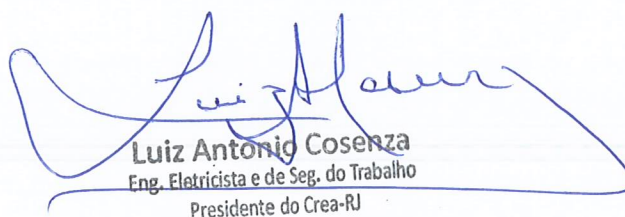 Luiz Antonio Cosenza
Eng. Eletricista e de Seg. do Trabalho
Presidente do Crea-RJ